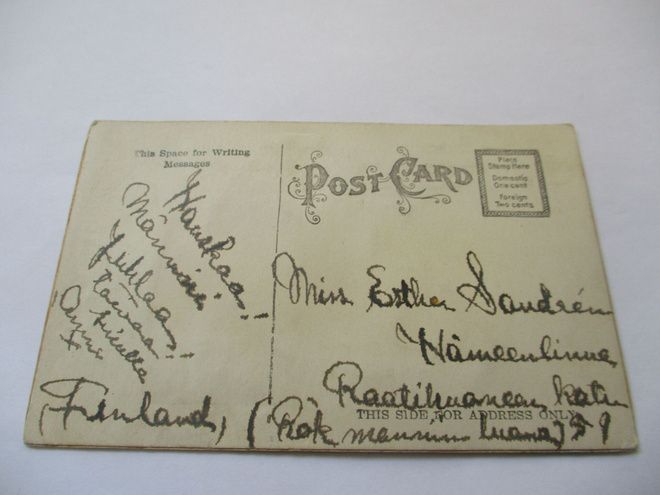 This Space for Writing
Messages
POST CARD
Place
Stamp Here
Domestic
One cent
Foreign
Two cents
Hauskaa
Juhlaa
toivoo
sinulle
X
Miss Esther Sandrén
Hämeenlinna
Raatihuoneen katu
THIS SIDE FOR ADDRESS ONLY
59
(Finland)